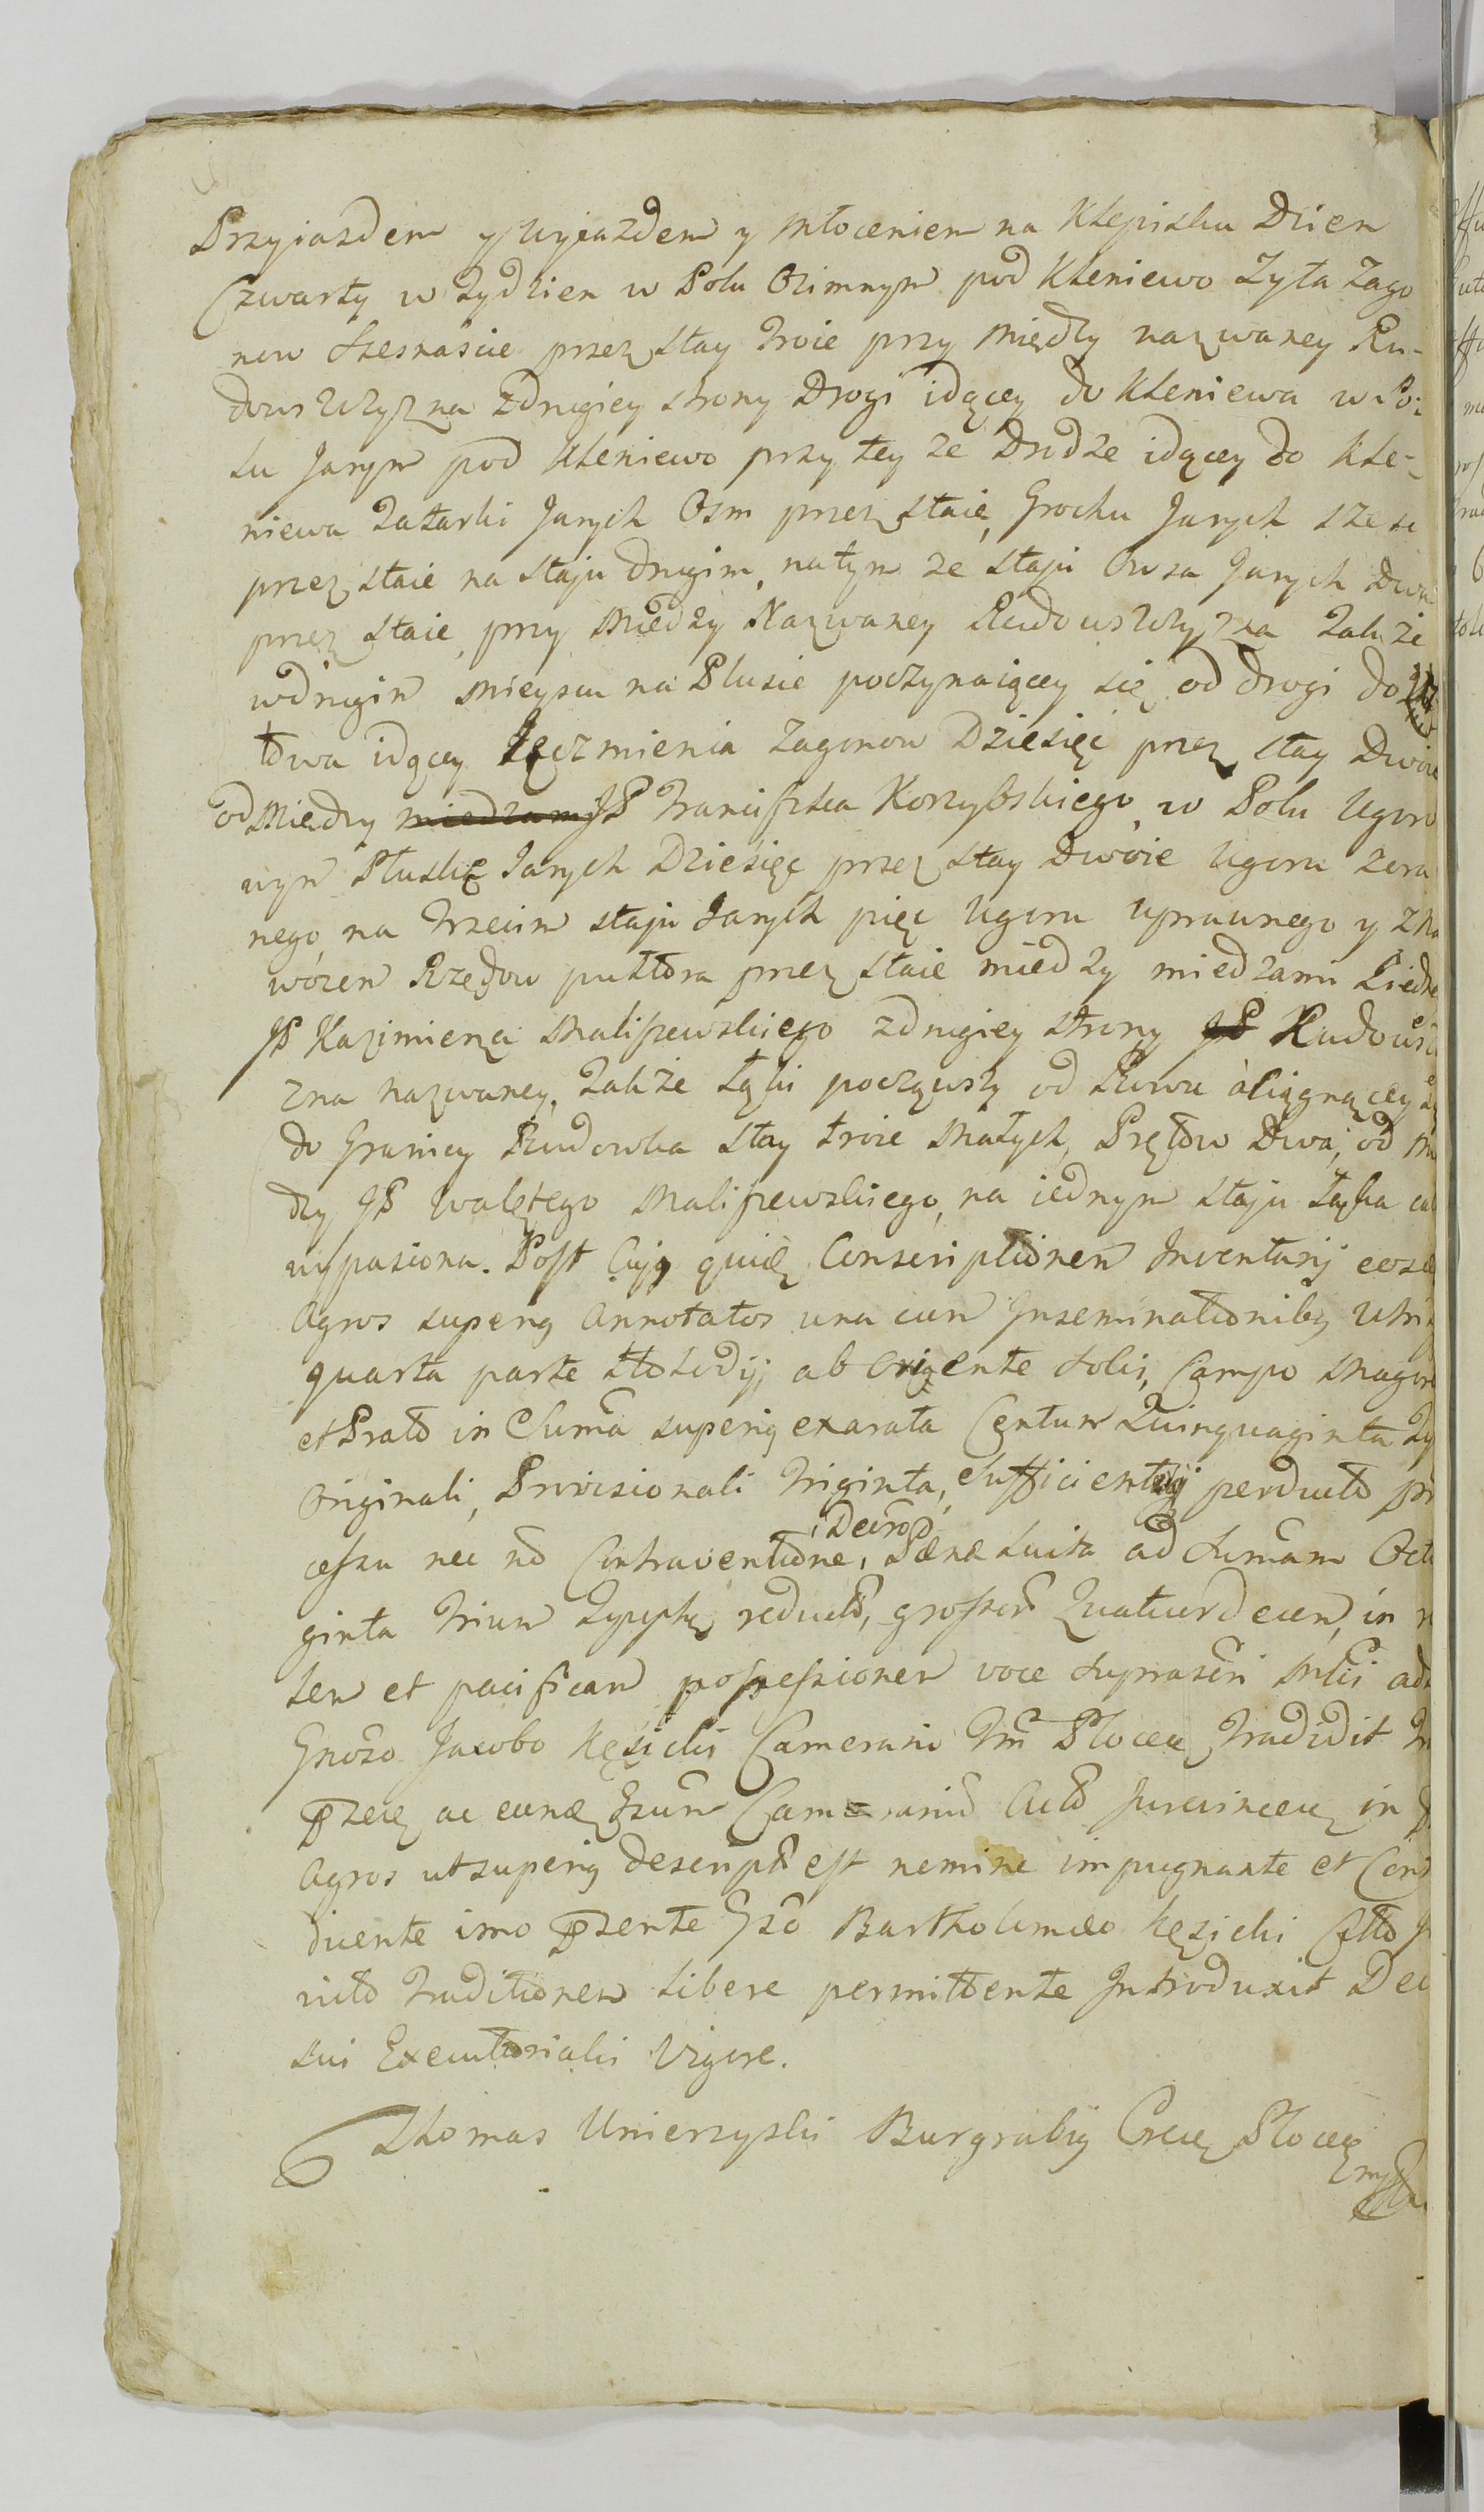 Przyiazdem y wyiazdem y młoceniem na Klepisku Dzien
Czwarty w Tydzien w Polu Ozimnym pod Kleniewo Zyta Zago
now szesnascie przez stay Troie przy Miedzy nazwaney Ru-
dowszczyzna z drugiey strony Drogi idącey do Kleniewa w Po-
lu Jarym pod Kleniewo przy tey ze Drodze idącey do Kle-
niewa Tatarki Jarych Osm przez staie, Grochu Jarych szesc
przez staie na staju drugim, na tym ze staju Owsa Jarych Dwa
przez staie, przy Miedzy Nazwaney Rudowszczyzna Takze
w drugim mieyscu na Plusie poczynaiącey się od drogi do
idącey Jęczmienia Zagonow Dziesięć przez stay Dwoie
od Miedzy miedzam JP Franciszka Korzybskiego, w Polu Ugoro
wym Pluskię Jarych Dziesięc przez stay Dwoie Ugoru zora
nego, na Trzecim staju Jarych pięc Ugoru uprawnego y z na
wozem Rzędow pułtora przez staie miedzy miedzami
JP Kazimierza Maliszewskiego z drugiey strony JP Rudowsz
zna nazwaney, Takze Łąki począwszy od Rowu a ciągnącey
do Granicy Rudowka stay troie Małych, Prętow Dwa, od Mie
dzy JP Walętego Maliszewskiego, na iednym staju Łąka
wypasiona. Post Cujq quidę Conscriptionem Inventarij eosd
Agros superiq Annotatos una cum Inseminationibq
quarta parte ab Oriente solis, Campo
et Prato in Sum̃a superiq exarata Centum Quinquaginta
Originali, Provisionali Triginta, Sufficienter perducto pro
cessu nec nõ Contraventione, Decreto, Pænæ luita ad sum̃am Octo
ginta Trium reducto, grossor Quatuordecem, in
lem et pacificam possessionem voce suprascri
Gnõso Jacobo Kęsicki Camerario Plocen Tradidit
Agros ut superiq descriptũ est nemine impugnante et Cont
dicente imo præsente Gsõ Bartholomæo Kęsicki
Traditionem libere permittente Introduxit Dec
sui Executorialis Vigore.
Thomas Unierzyski Burgrabiq Plocen